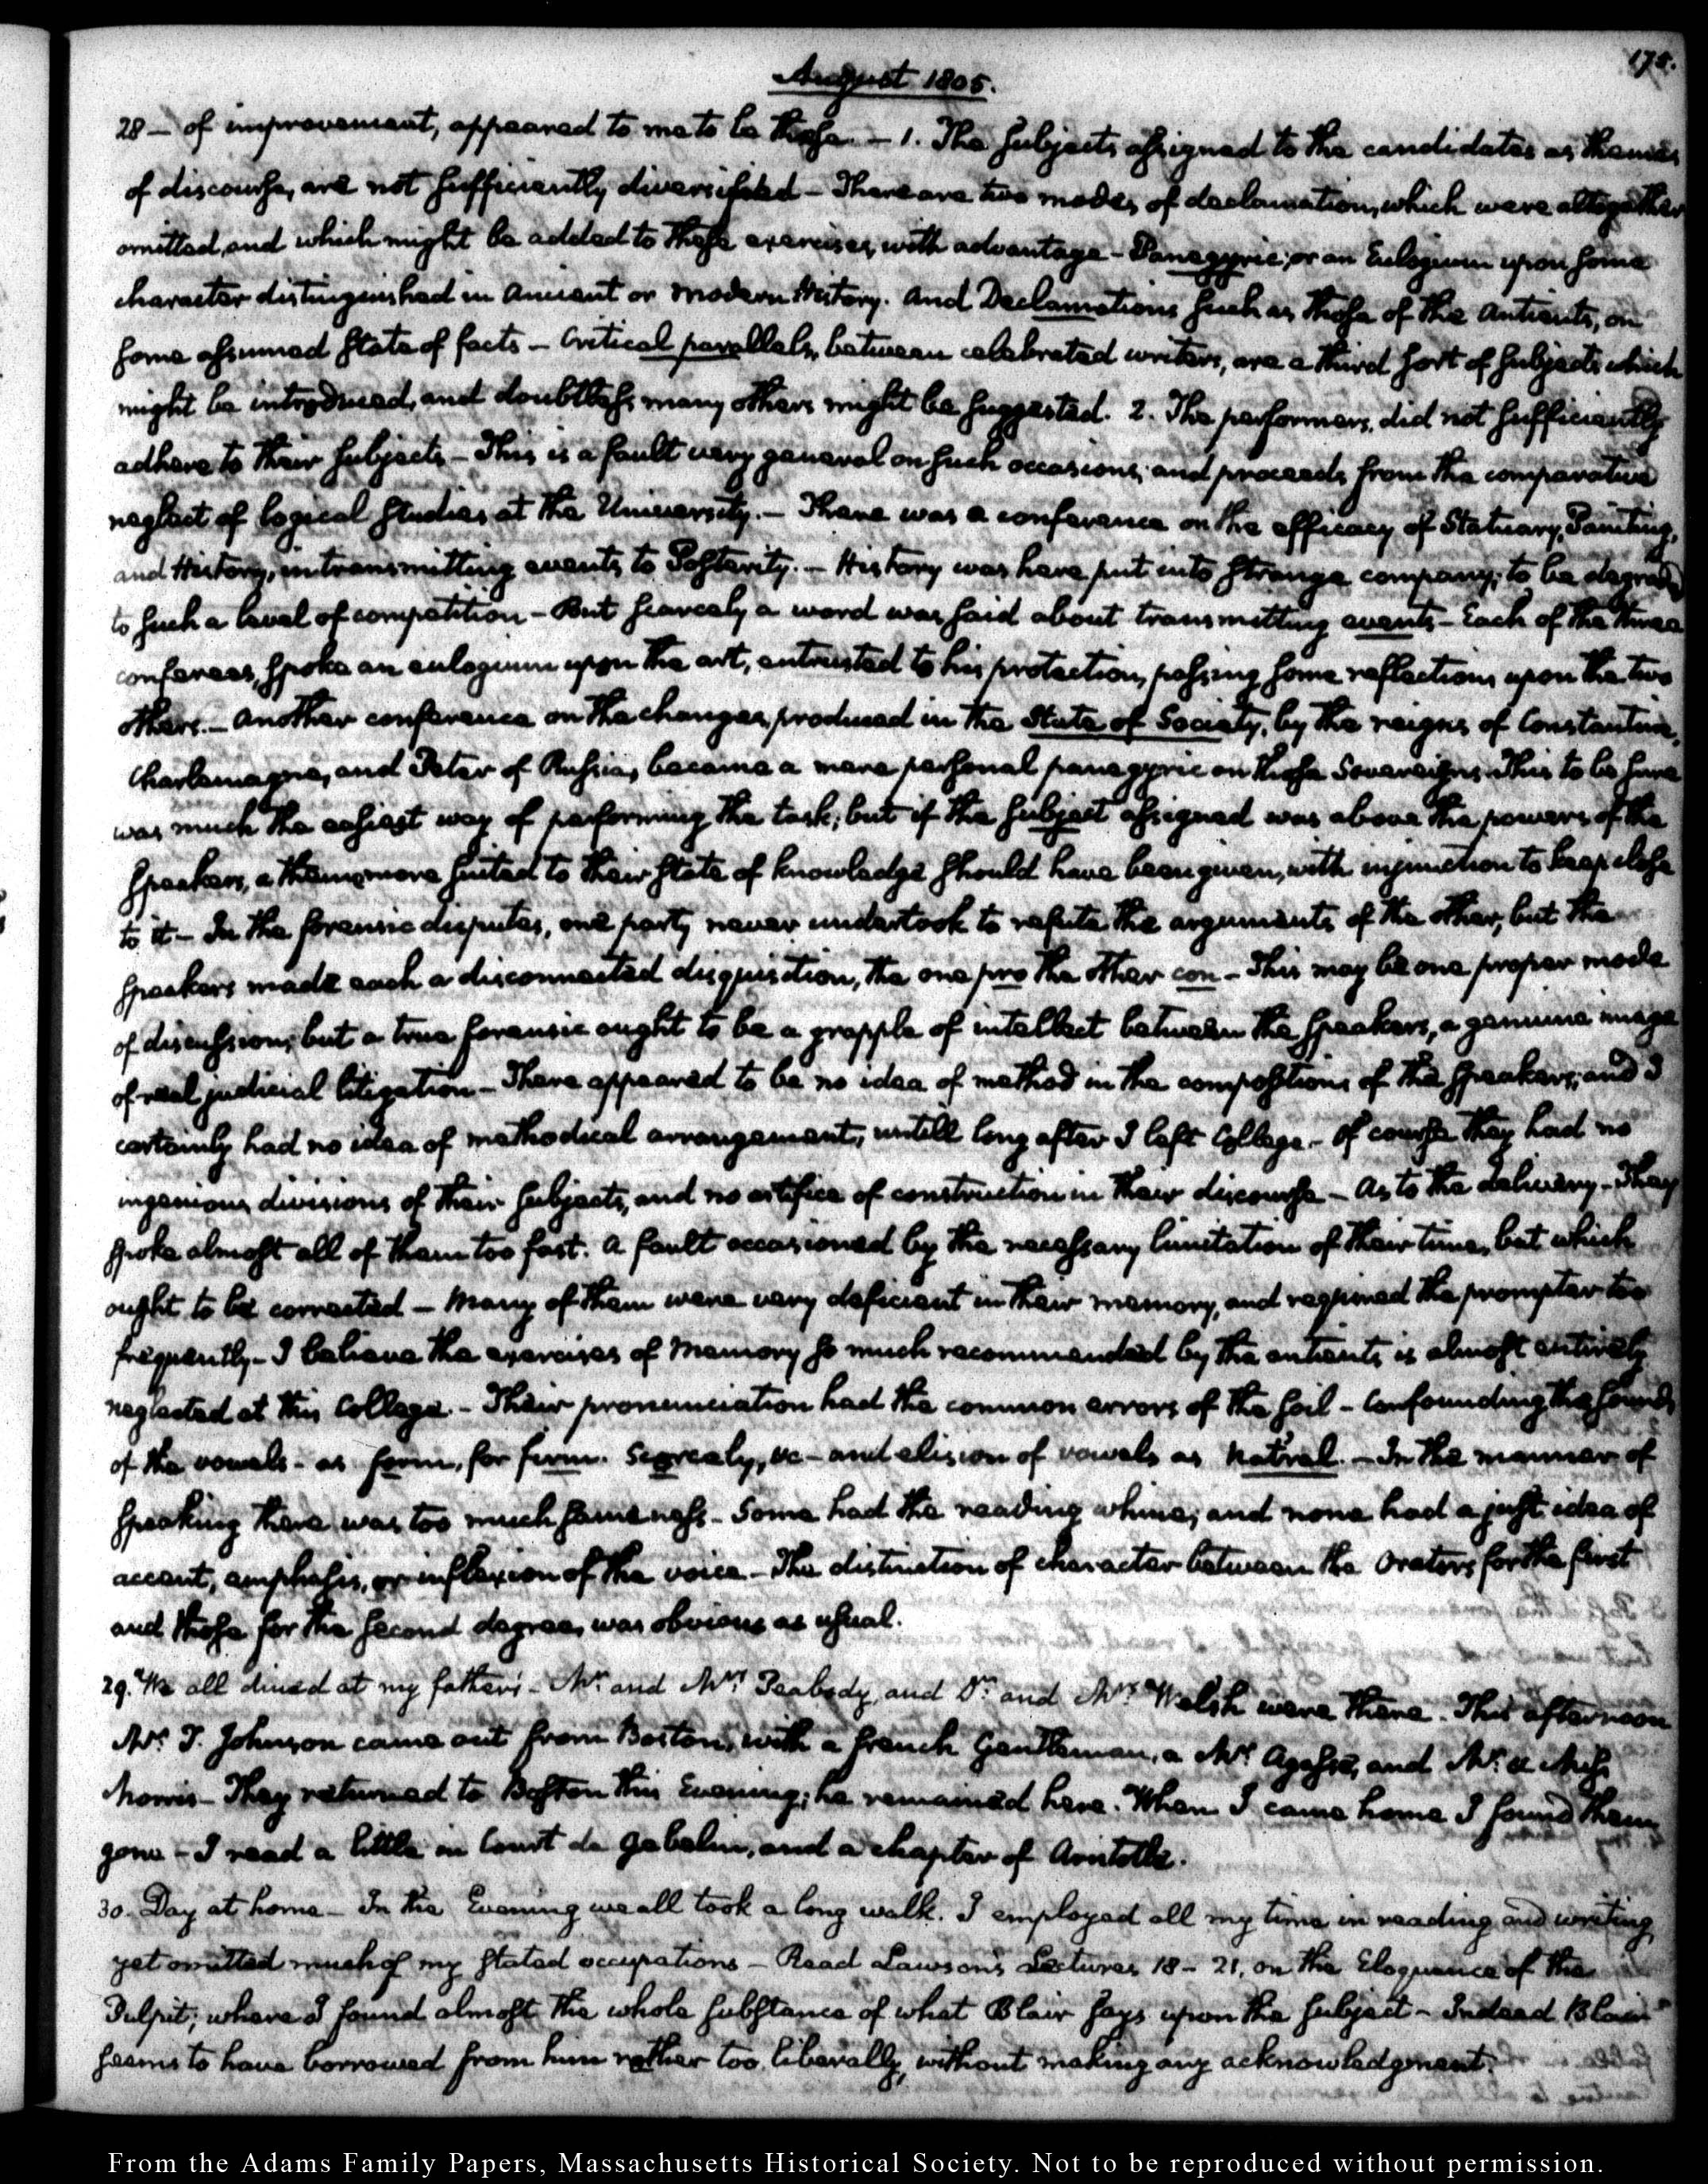 175.
August 1805.
28 — of improvement, appeared to me to be these. — 1. The subjects assigned to the candidates as themes
of discourse, are not sufficiently diversified — There are two modes of declamation, which were altogether
omitted, and which might be added to these exercises with advantage — Panegyric; or an Eulogium upon some
character distinguished in Ancient or Modern History. And Declamations such as those of the Antients, on
some assumed state of facts — Critical parallels, between celebrated writers, are a third sort of subjects which
might be introduced, and doubtless many others might be suggested. 2. The performers, did not sufficiently
adhere to their subjects — This is a fault very general on such occasions; and proceeds from the comparative
neglect of logical studies at the University. — There was a conference on the efficacy of Statuary, Painting,
and History, in transmitting events to Posterity. — History was here put into strange company; to be degraded
to such a level of competition — But scarcely a word was said about transmitting events — Each of the three
conferees, spoke an eulogium upon the art, entrusted to his protection, passing some reflections upon the two
others. — Another conference on the changes produced in the State of Society, by the reigns of Constantine,
Charlemagne, and Peter of Russia, became a mere personal panegyric on those Sovereigns. This to be sure
was much the easiest way of performing the task; but if the subject assigned was above the powers of the
speakers, a theme more suited to their state of knowledge should have been given, with injunction to keep close
to it — In the forensic disputes, one party never undertook to refute the arguments of the other, but the
speakers made each a disconnected disquisition, the one pro the other con — This may be one proper mode
of discussion; but a true forensic ought to be a grapple of intellect between the speakers, a genuine image
of real judicial litigation — There appeared to be no idea of method in the compositions of the speakers; and I
certainly had no idea of methodical arrangement, untill long after I left College — Of course they had no
ingenious divisions of their subjects, and no artifice of construction in their discourse — As to the delivery — They
spoke almost all of them too fast. A fault occasioned by the necessary limitation of their time, but which
ought to be corrected — Many of them were very deficient in their memory, and required the prompter too
frequently — I believe the exercises of Memory so much recommended by the antients is almost entirely
neglected at this College. — Their pronunciation had the common errors of the soil — Confounding the sounds
of the vowels — as form, for firm. Scorcely, &c — and elision of vowels as nat'ral. — In the manner of
speaking there was too much sameness — Some had the reading whine; and none had a just idea of
accent, emphasis, or inflexion of the voice — The distinction of character between the Orators for the first
and those for the second degree, was obvious as usual.
29. We all dined at my father's — Mr. and Mrs. Peabody, and Dr. and Mrs. Welsh were there. This afternoon
Mr. T. Johnson came out from Boston, with a french Gentleman, a Mr. Agasse, and Mr. & Miss
Morris — They returned to Boston this Evening; he remained here. When I came home I found them
gone — I read a little in Court de Gebelin, and a chapter of Aristotle.
30. Day at home — In the Evening we all took a long walk. I employed all my time in reading and writing,
yet omitted much of my stated occupations — Read Lawson's Lectures 18 – 21, on the Eloquence of the
Pulpit; where I found almost the whole substance of what Blair says upon the subject — Indeed Blair
seems to have borrowed from him rather too liberally, without making any acknowledgment.
From the Adams Family Papers, Massachusetts Historical Society. Not to be reproduced without permission.